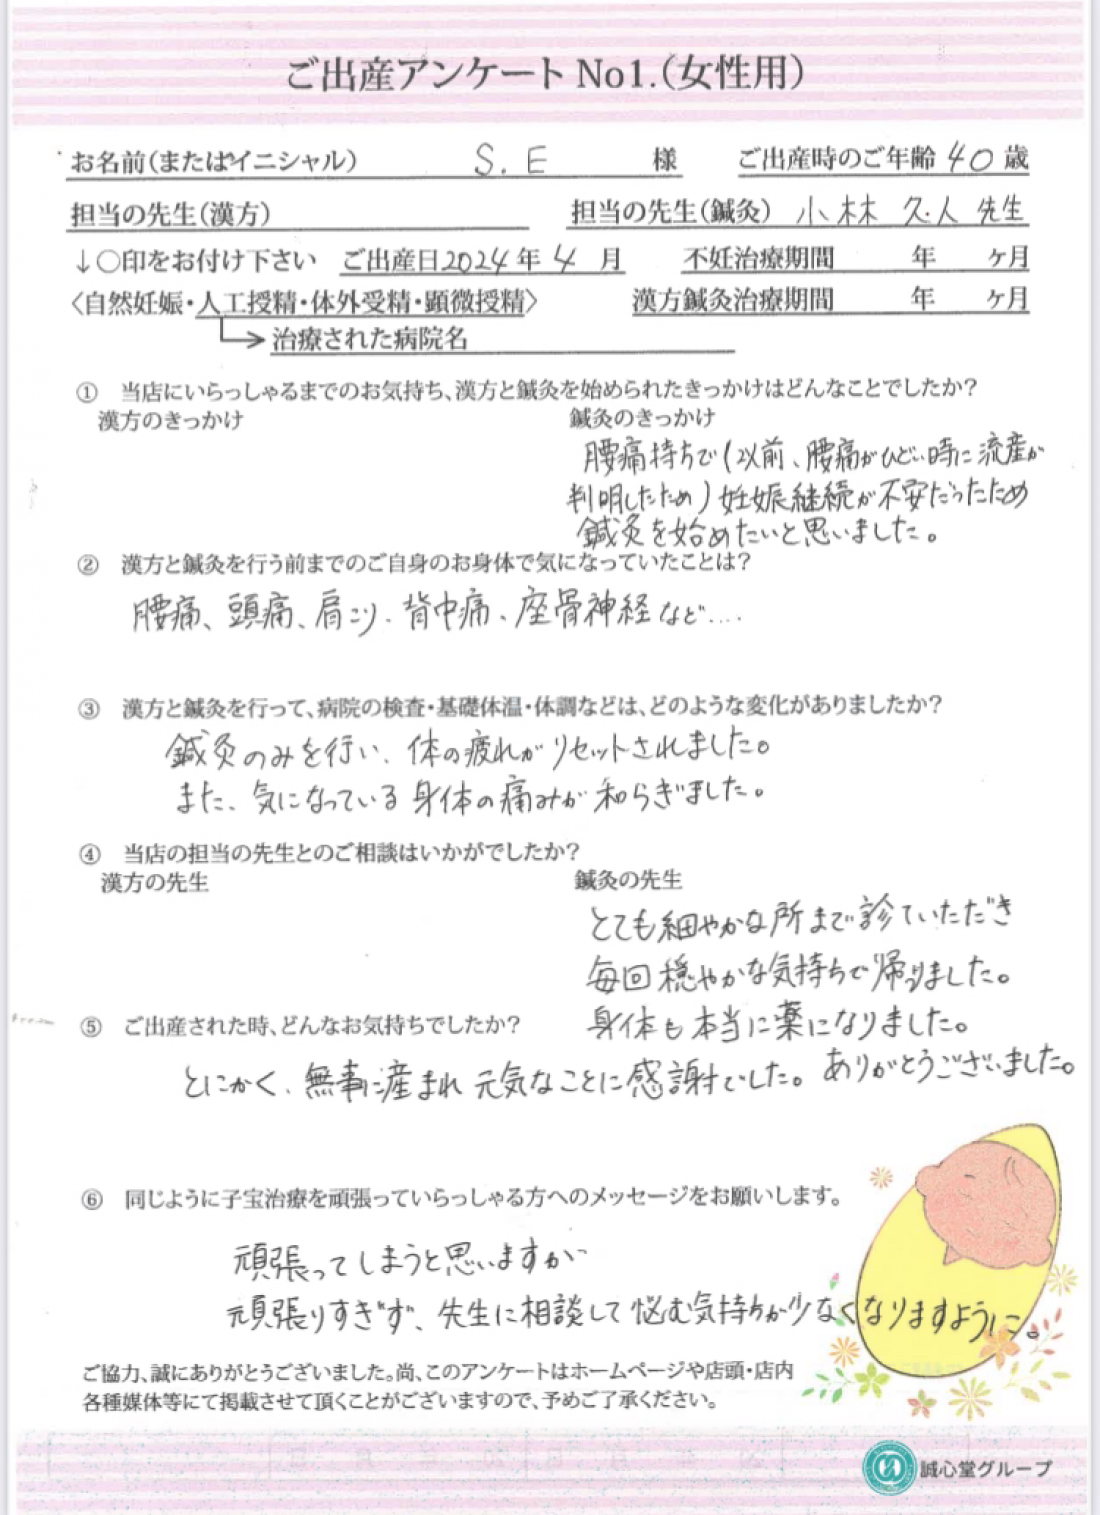 ご出産アンケート No1.(女性用)
お名前(またはイニシャル) S.E 様 ご出産時のご年齢 40 歳
担当の先生(漢方) 担当の先生(鍼灸) 小林 久人 先生
↓○印をお付け下さい ご出産日2024年 4 月 不妊治療期間 年 ヶ月
〈自然妊娠・人工授精・体外受精・顕微授精〉 漢方鍼灸治療期間 年 ヶ月
治療された病院名
① 当店にいらっしゃるまでのお気持ち、漢方と鍼灸を始められたきっかけはどんなことでしたか?
漢方のきっかけ 鍼灸のきっかけ
腰痛持ちで(以前、腰痛がひどい時に流産が
判明したため)妊娠継続が不安だったため
鍼灸を始めたいと思いました。
② 漢方と鍼灸を行う前までのご自身のお身体で気になっていたことは?
腰痛、頭痛、肩こり、背中痛、座骨神経など....
③ 漢方と鍼灸を行って、病院の検査・基礎体温・体調などは、どのような変化がありましたか?
鍼灸のみを行い、体の疲れがリセットされました。
また、気になっている身体の痛みが和らぎました。
④ 当店の担当の先生とのご相談はいかがでしたか?
漢方の先生 鍼灸の先生
とても細やかな所まで診ていただき
毎回穏やかな気持ちで帰りました。
身体も本当に薬になりました。
ありがとうございました。
⑤ ご出産された時、どんなお気持ちでしたか?
とにかく、無事に産まれ元気なことに感謝でした。
⑥ 同じように子宝治療を頑張っていらっしゃる方へのメッセージをお願いします。
頑張ってしまうと思いますが
頑張りすぎず、先生に相談して悩む気持ちが少なくなりますように。
ご協力、誠にありがとうございました。尚、このアンケートはホームページや店頭・店内
各種媒体等にて掲載させて頂くことがございますので、予めご了承ください。
誠心堂グループ